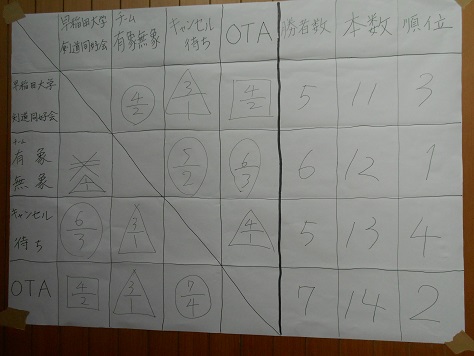 早稲田大学
剣道同好会
チーム
有象無象
キャンセル
待ち
OTA
勝者数
本数
順位
早稲田大学
剣道同好会
4/2
3/1
4/2
5
11
3
チーム
有象
無象
5/2
6/3
6
12
1
キャンセル
待ち
6/3
3/1
4/1
5
13
4
OTA
4/2
3/1
7/4
7
14
2